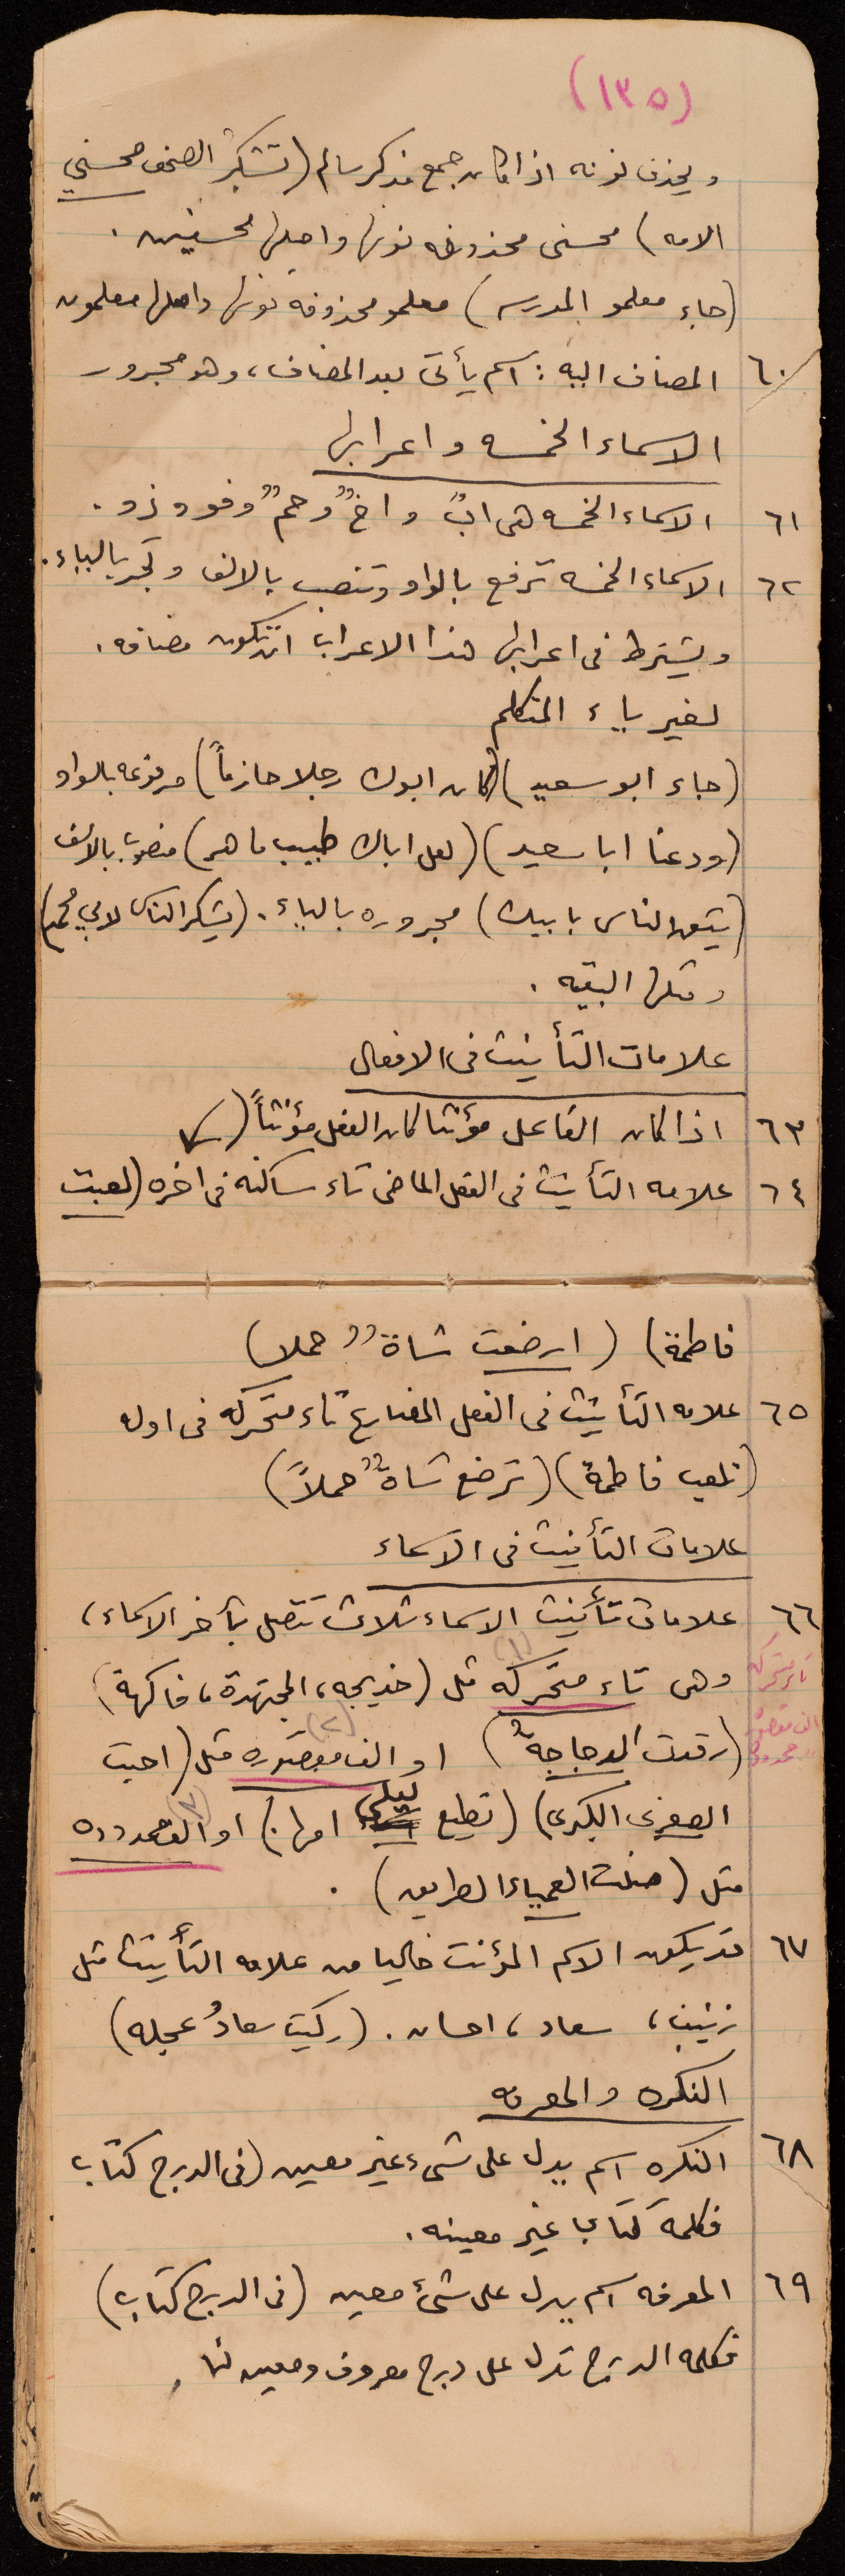 (١٣٥)
ويحذف نونه اذا كان جمع مذكر سالم (تشكر الصحف محسني
الامه) محسني محذوفه نونها واصلها محسنين .
(جاء معلمو المدرسه) معلمو محذوفه نونها واصلها معلمون
٦٠ المضاف اليه : اسم يأتى بعد المضاف ، وهو مجرور
الاسماء الخمسه واعرابها
٦١ الاسماء الخمسه هى ابٌ واخٌ وحمٌ وفو وذو .
٦٢ الاسماء الخمسه ترفع بالواو وتنصب بالالف وتجر بالياء .
ويشترط فى اعرابها هذا الاعراب ان تكون مضافه .
لغير ياء المتكلم
(جاء ابو سعيد) (كان ابوك رجلا حازماً) مرفوعه بالواو
(ودعنا ابا سعيد) (لعل اباك طبيب ماهر) منصوب بالالف
(يثق الناس بابيك) مجروره بالياء . (يشكر الناس لابي محمد)
ومثلها البقيه .
علامات التأنيث فى الافعال
٦٣ اذا كان الفاعل مؤنثا كان الفعل مؤنثاً (
٦٤ علامه التأنيث فى الفعل الماضى تاء ساكنه فى اخره (لعبت
فاطمة) (ارضعت شاةٌ حملا)
٦٥ علامه التأنيث فى الفعل المضارع تاء متحركه فى اوله
(تلعب فاطمة) (ترضع شاةٌ حملاً)
علامات التأنيث فى الاسماء
٦٦ علامات تأنيث الاسماء ثلاث تتصل بآخر الاسماء ،
(١)
وهى تاء متحركه مثل (خديجه ، المجتهدة ، فاكهة)
تاء متحركه
(٢)
(رقدت الدجاجةُ) او الف مقصوره مثل (احبت
الف مقصوره
ممدوده
الصغرى الكبرى) (تطيع ليلى امها) او الف ممدوده
(٣)
مثل (ضلت العمياء الطريق) .
٦٧ قد يكون الاسم المؤنث خاليا من علامه التأنيث مثل
زينب ، سعاد ، احسان . (ركبت سعادُ عجله)
النكره والمعرفه
٦٨ النكره اسم يدل على شىء غير معين (فى الدرج كتاب
فكلمة كتاب غير معينه .
٦٩ المعرفه اسم يدل على شئ معين (فى الدرج كتاب)
فكلمه الدرج تدل على درج معروف ومعين لنا .